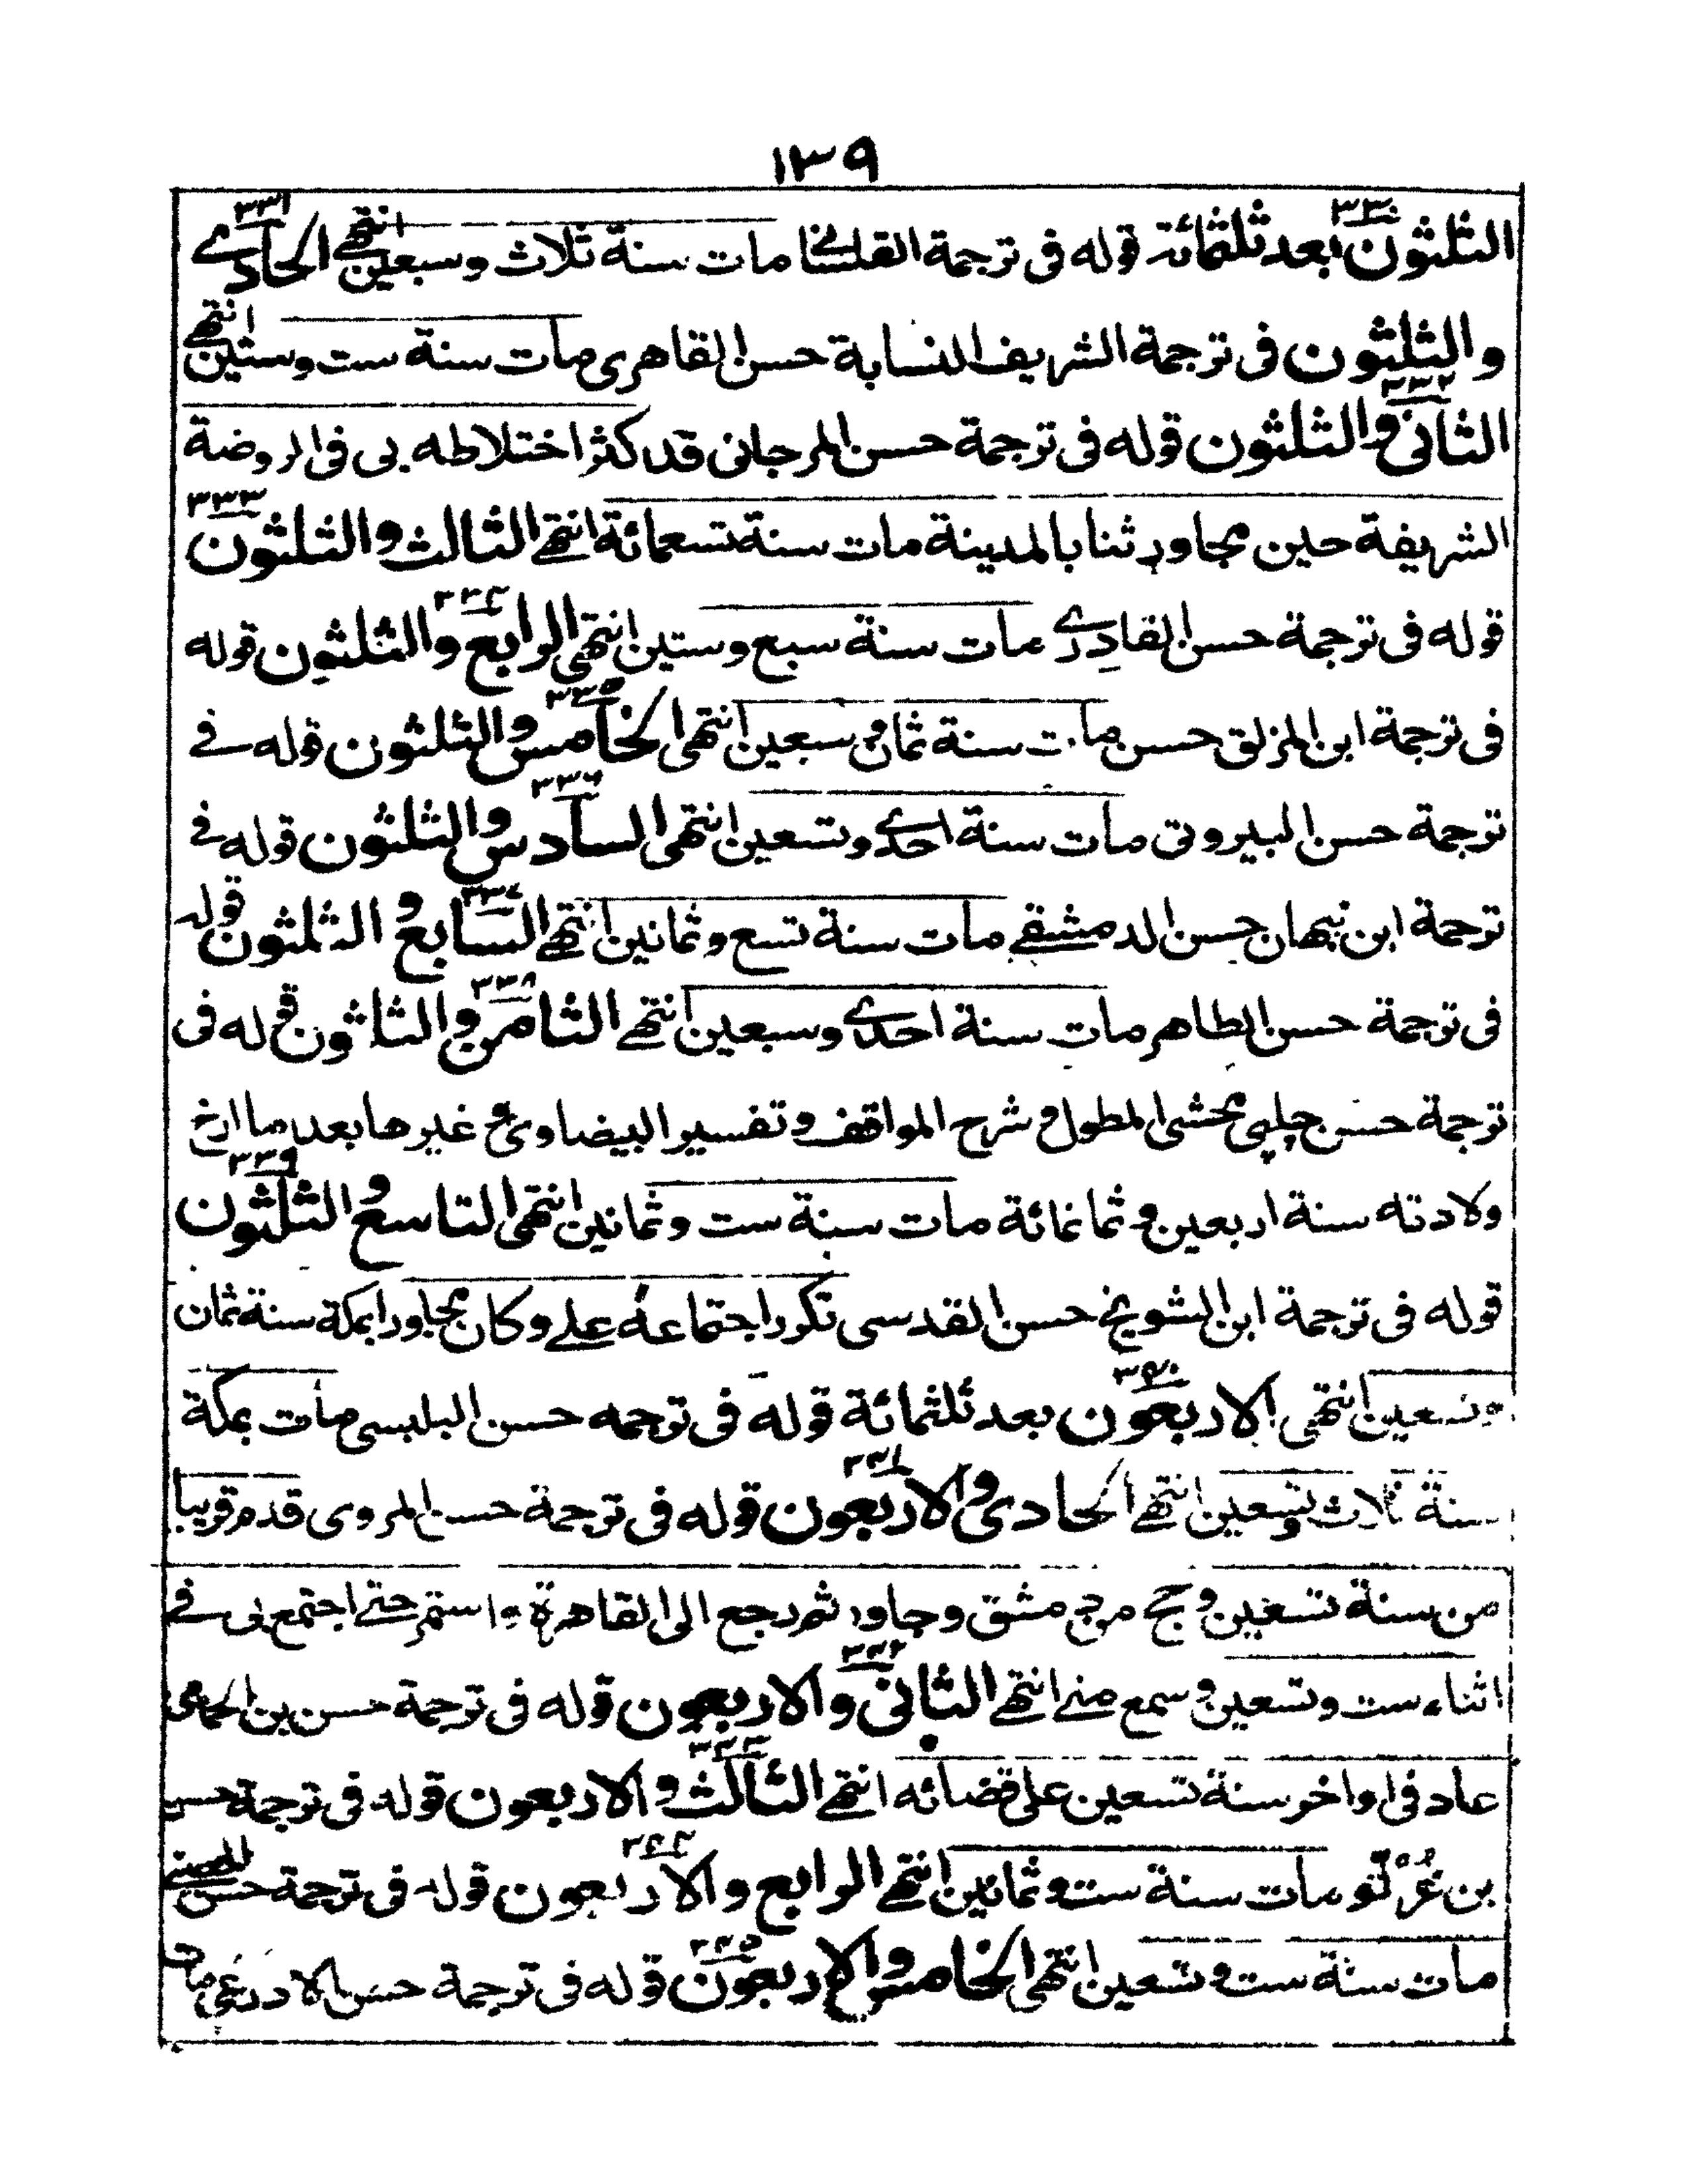 ١٣٩
٣٣٠ ٣٣١
الثلثون بعد ثلثمائة قوله فى ترجمة مات سنة ثلاث وسبعين انتهے الحادے
والثلثون فى ترجمة الشريف النسابة حسن القاهرى مات سنة ست وستين انتهے
٣٣٢
الثانى والثلثون قوله فى ترجمة حسن المرجانى قد كثر اختلاطه بى فى الروضة
٣٣٣
الشريفة حين مجاورتنا بالمدينة مات سنة تسعمائة انتهے الثالث والثلثون
٣٣٤
قوله فى ترجمة حسن القادرے مات سنة سبع وستين انتهى الرابع والثلثون قوله
٣٣٥
فى ترجمة ابن المزلق حسن مات سنة ثمان وسبعين انتهى الخامس والثلثون قوله فے
٣٣٦
ترجمة حسن البيروتى مات سنة احدے وتسعين انتهى السادس والثلثون قوله فے
٣٣٧
ترجمة ابن نبهان حسن الدمشقے مات سنة تسع وثمانين انتهے السابع والثلثون قوله
٣٣٨
فى ترجمة حسن الطاهر مات سنة احدے وسبعين انتهے الثامن والثلثون قوله فى
ترجمة حسن چلپى محشى المطول وشرح المواقف وتفسير البيضاوى وغيرها بعد ما ارخ
٣٣٩
ولادته سنة اربعين وثمانمائة مات سنة ست وثمانين انتهى التاسع والثلثون
قوله فى ترجمة ابن الشويخ حسن القدسى تكرر اجتماعه علے وكان مجاورا بمكة سنة ثمان
٣٤٠
وتسعين انتهى الاربعون بعد ثلثمائة قوله فى ترجمه حسن البلبسى مات بمكة
٣٤١
سنة ثلاث وتسعين انتهے الحادى والاربعون قوله فى ترجمة حسن المروى قدم قريبا
من سنة تسعين وحج من دمشق وجاور ثم رجع الى القاهرة واستمر حتے اجتمع بى فے
٣٤٢
اثناء ست وتسعين وسمع منے انتهے الثانى والاربعون قوله فى ترجمة حسن بن
٣٤٣
عاد فى اواخر سنة تسعين على قضائه انتهے الثالث والاربعون قوله فى ترجمة حسن
٣٤٤
بن غُرْلُو مات سنة ست وثمانين انتهے الرابع والاربعون قوله فى ترجمة حسن
٣٤٥
مات سنة ست وتسعين انتهى الخامس والاربعون قوله فى ترجمة حسن مات